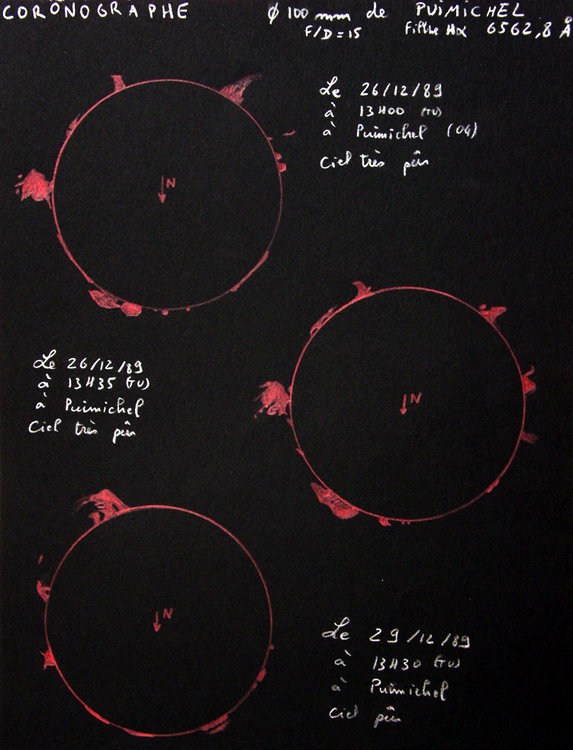 CORONOGRAPHE ϕ 100 mm de PUIMICHEL
F/D = 15 Filtre Hα 6562,8 Å
Le 26/12/89
à 13H00 (TU)
à Puimichel (04)
Ciel très pûr
N
Le 26/12/89
à 13H35 (TU)
à Puimichel
Ciel très pûr
N
N
Le 29/12/89
à 13H30 (TU)
à Puimichel
Ciel pûr